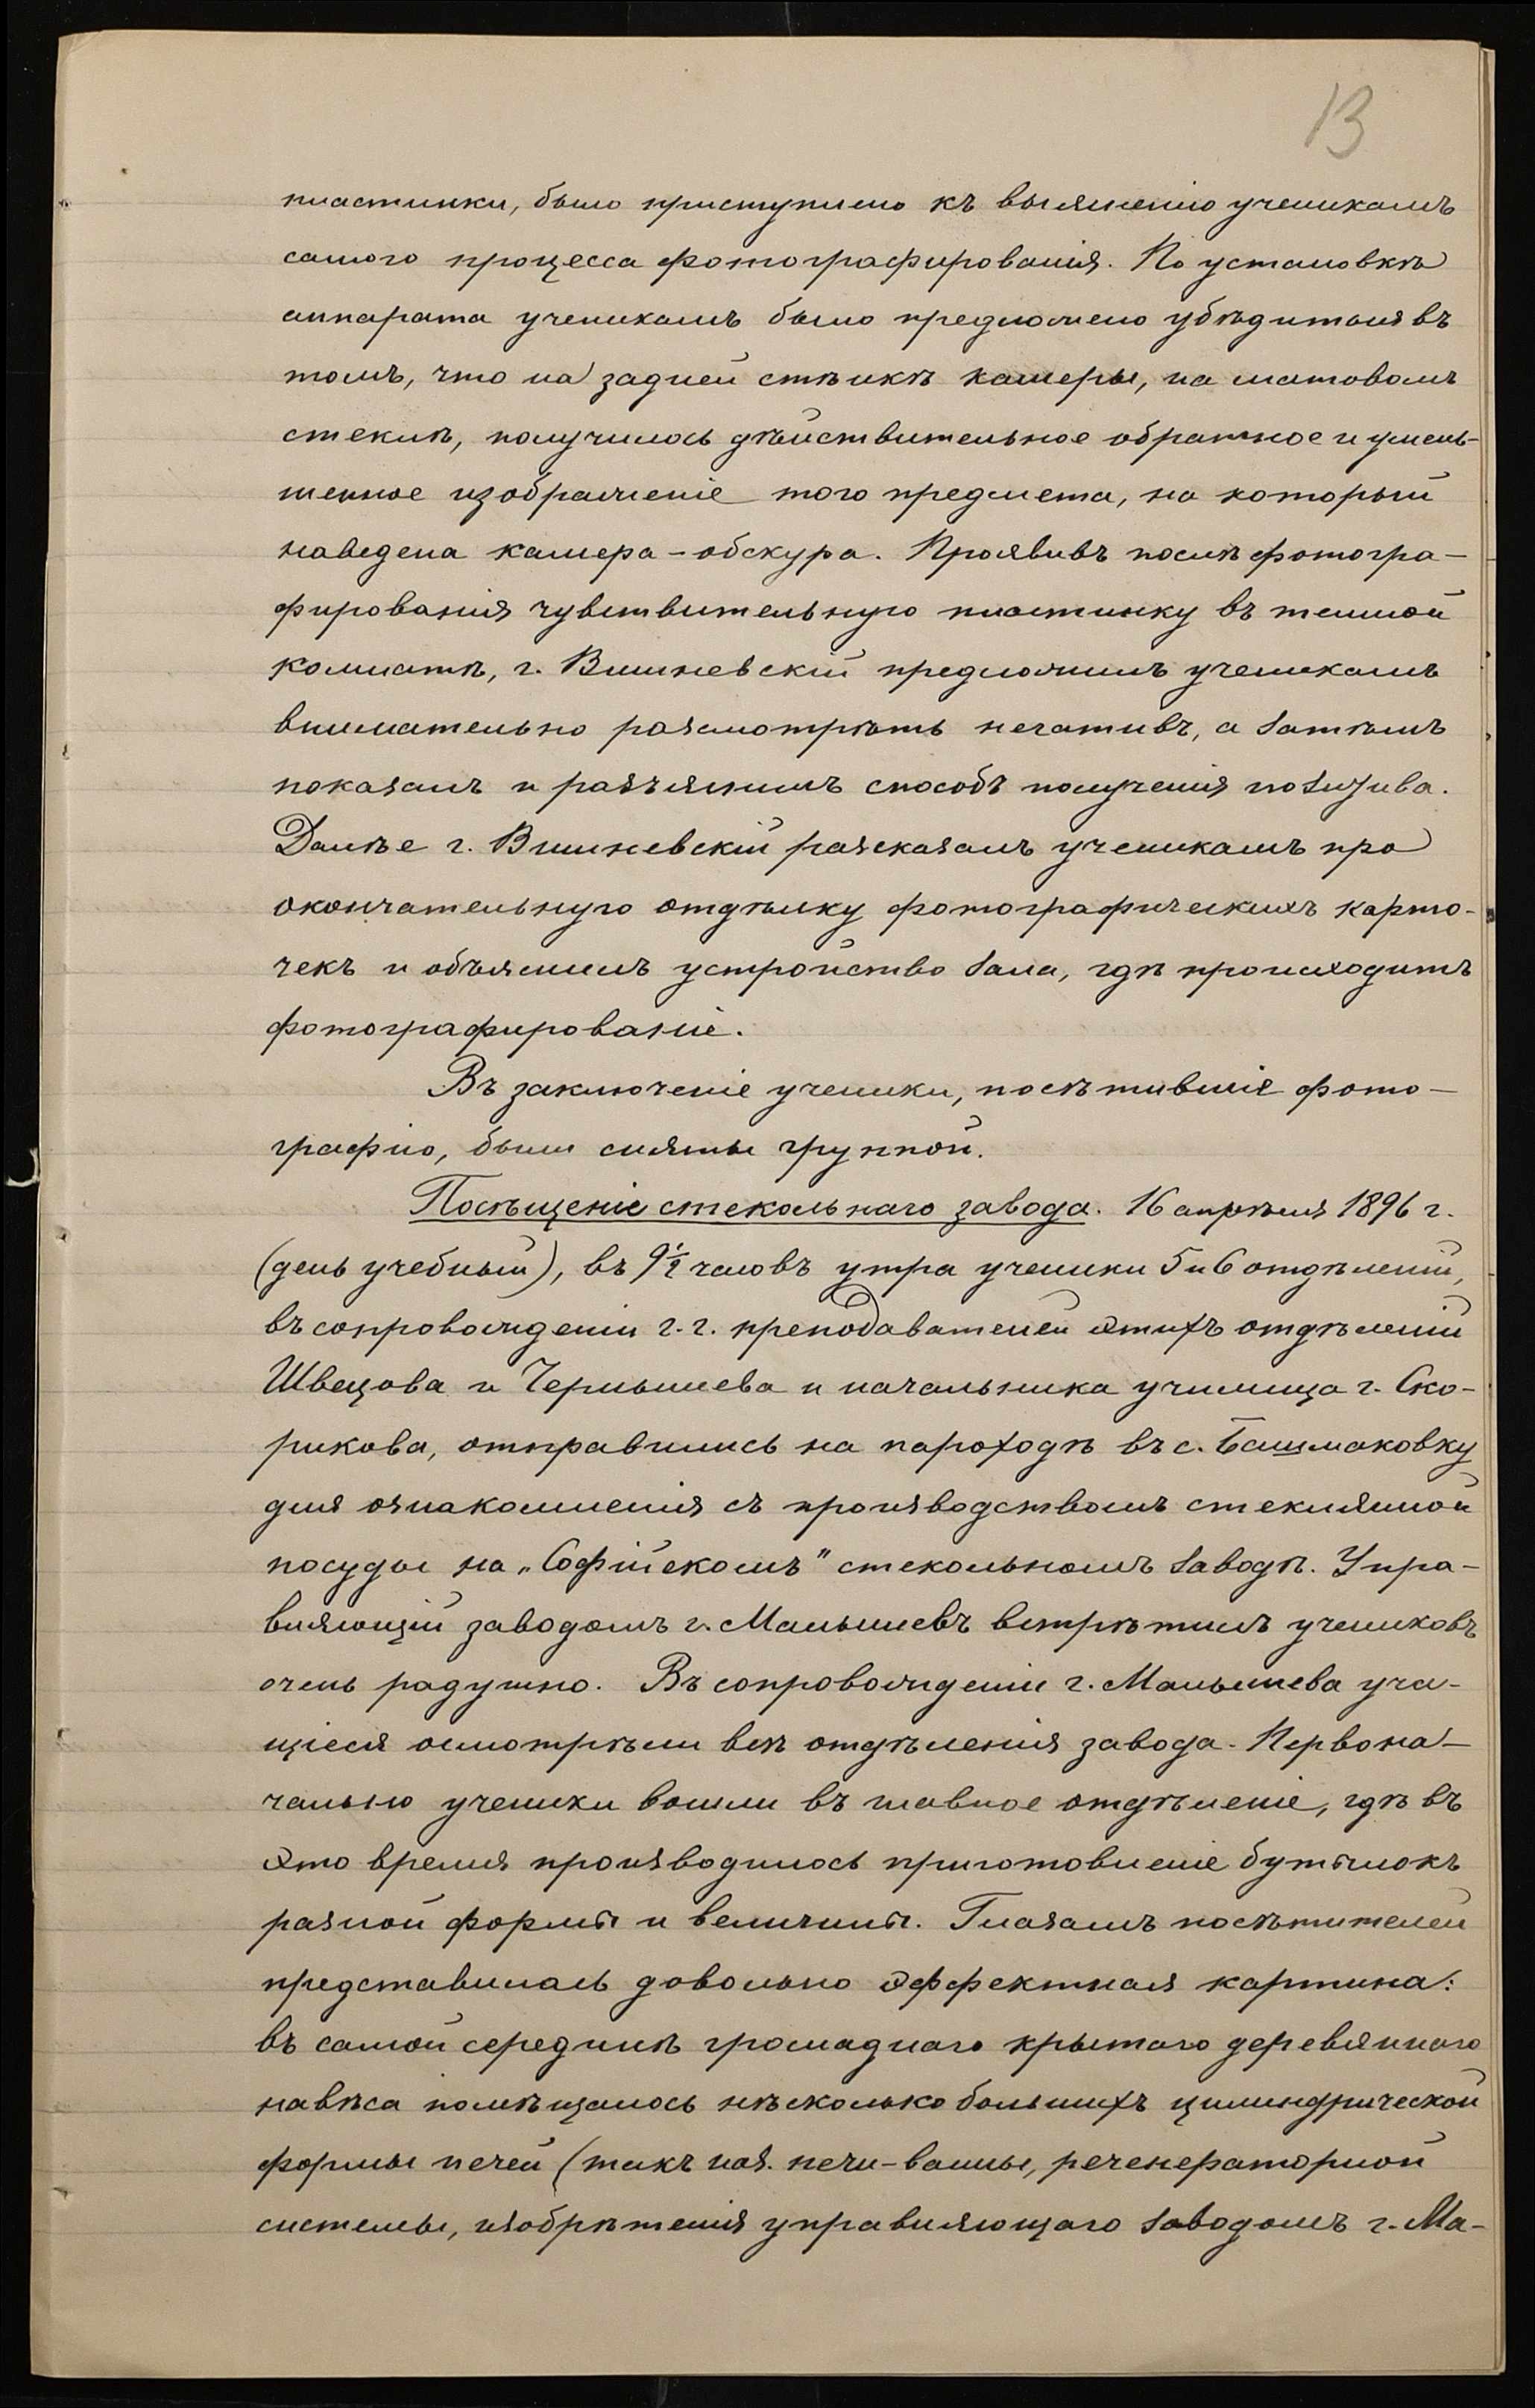 13
пластинки, было приступлено къ выясненію ученикамъ
самого процесса фотографированія. По установкѣ
аппарата ученикамъ было предложено убѣдиться въ
томъ, что на задней стѣнкѣ камеры, на матовомъ
стеклѣ, получилось дѣйствительное обратное и умень-
шенное изображеніе того предмета, на который
наведена камера-обскура. Проявивъ послѣ фотогра-
фированія чувствительную пластинку въ темной
комнатѣ, г. Вишневскій предложилъ ученикамъ
внимательно разсмотрѣть негативъ, а затѣмъ
показалъ и разъяснилъ способъ полученія позитива.
Далѣе г. Вишневскій разсказалъ ученикамъ про
окончательную отдѣлку фотографическихъ карто-
чекъ и объяснилъ устройство зала, гдѣ происходитъ
фотографированіе.
Въ заключеніе ученики, посѣтившіе фото-
графію, были сняты группой.
Посѣщеніе стекольнаго завода. 16 апрѣля 1896 г.
(день учебный), въ 9½ часовъ утра ученики 5 и 6 отдѣленій,
въ сопровожденіи г.г. преподавателей этихъ отдѣленій
Швецова и Чернышева и начальника училища г. Ско-
рикова, отправились на пароходѣ въ с. Башмаковку
для ознакомленія съ производствомъ стеклянной
посуды на „Софійскомъ" стекольномъ заводѣ. Упра-
вляющій заводомъ г. Малышевъ встрѣтилъ учениковъ
очень радушно. Въ сопровожденіи г. Малышева уча-
щіеся осмотрѣли всѣ отдѣленія завода. Первона-
чально ученики вошли въ главное отдѣленіе, гдѣ въ
это время производилось приготовленіе бутылокъ
разной формы и величины. Глазамъ посѣтителей
представилась довольно эффектная картина:
въ самой серединѣ громаднаго крытаго деревяннаго
навѣса помѣщалось нѣсколько большихъ цилиндрической
формы печей (такъ наз. печи-ванны, регенераторной
системы, изобрѣтенія управляющаго заводомъ г. Ма-